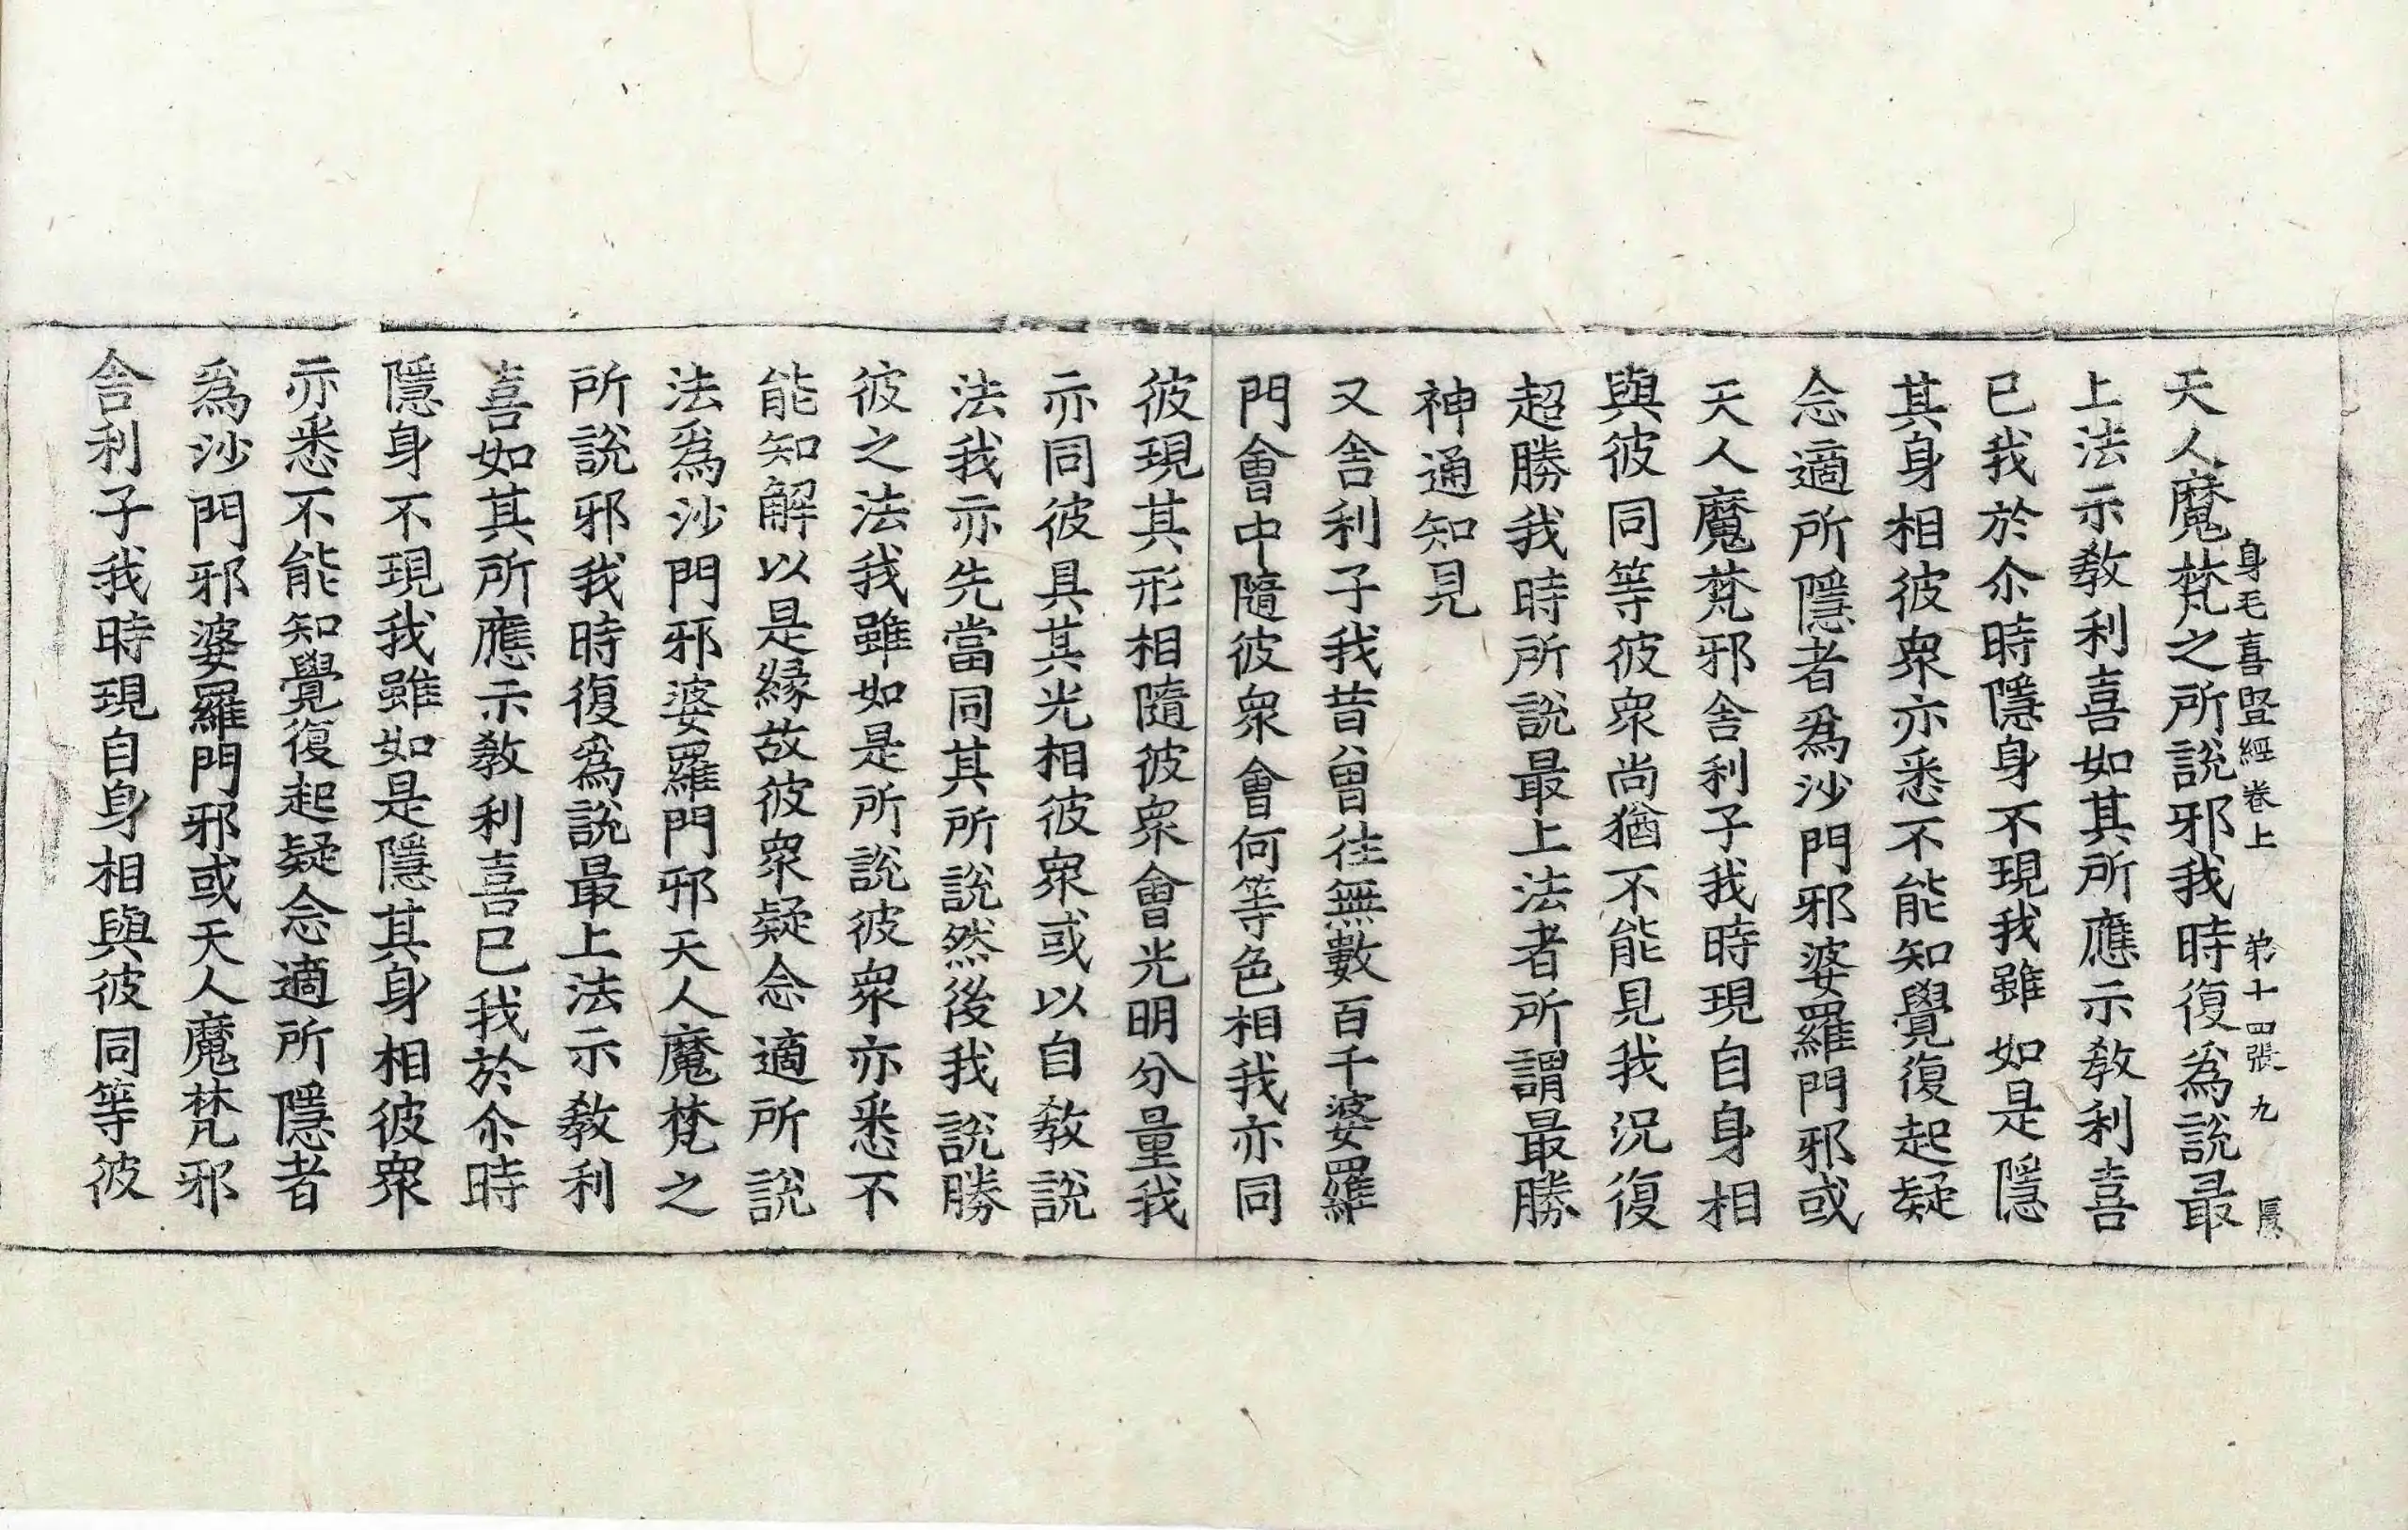 身毛喜豎經卷上　第十四張　九
天人魔梵之所說邪我時復爲說最
上法示教利喜如其所應示教利喜
已我於尒時隱身不現我雖如是隱
其身相彼衆亦悉不能知覺復起疑
念適所隱者爲沙門邪婆羅門邪或
天人魔梵邪舍利子我時現自身相
與彼同等彼衆尚猶不能見我況復
超勝我時所說最上法者所謂最勝
神通知見
又舍利子我昔曾往無數百千婆羅
門會中隨彼衆會何等色相我亦同
彼現其形相隨彼衆會光明分量我
亦同彼具其光相彼衆或以自教說
法我亦先當同其所說然後我說勝
彼之法我雖如是所說彼衆亦悉不
能知解以是縁故彼衆疑念適所說
法爲沙門邪婆羅門邪天人魔梵之
所說邪我時復爲說最上法示教利
喜如其所應示教利喜已我於尒時
隱身不現我雖如是隱其身相彼衆
亦悉不能知覺復起疑念適所隱者
爲沙門邪婆羅門邪或天人魔梵邪
舍利子我時現自身相與彼同等彼